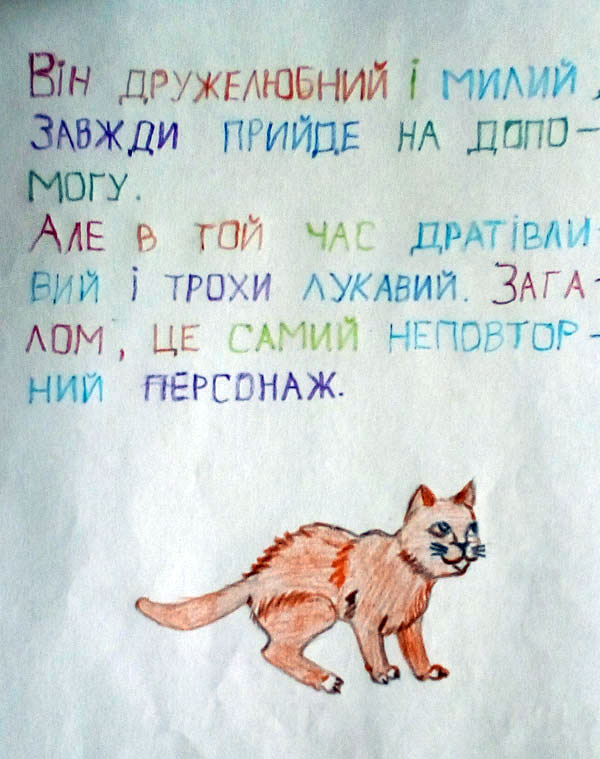 Він дружелюбний і милий,
завжди прийде на допо-
могу.
Але в той час дратівли-
вий і трохи лукавий. Зага-
лом, це самий неповтор-
ний персонаж.